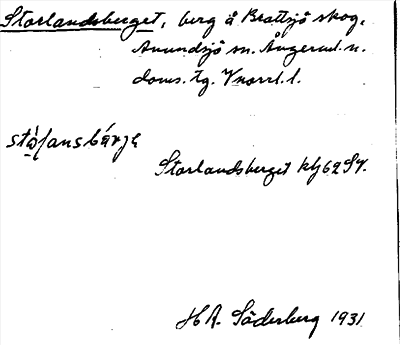 Storlandsberget, berg å Brattsjö skog.
Anundsjö sn. Ångerml. n.
doms. tg. Vnorrl. l.
Storlandsberget klj 62 SV.
H A. Söderberg 1931